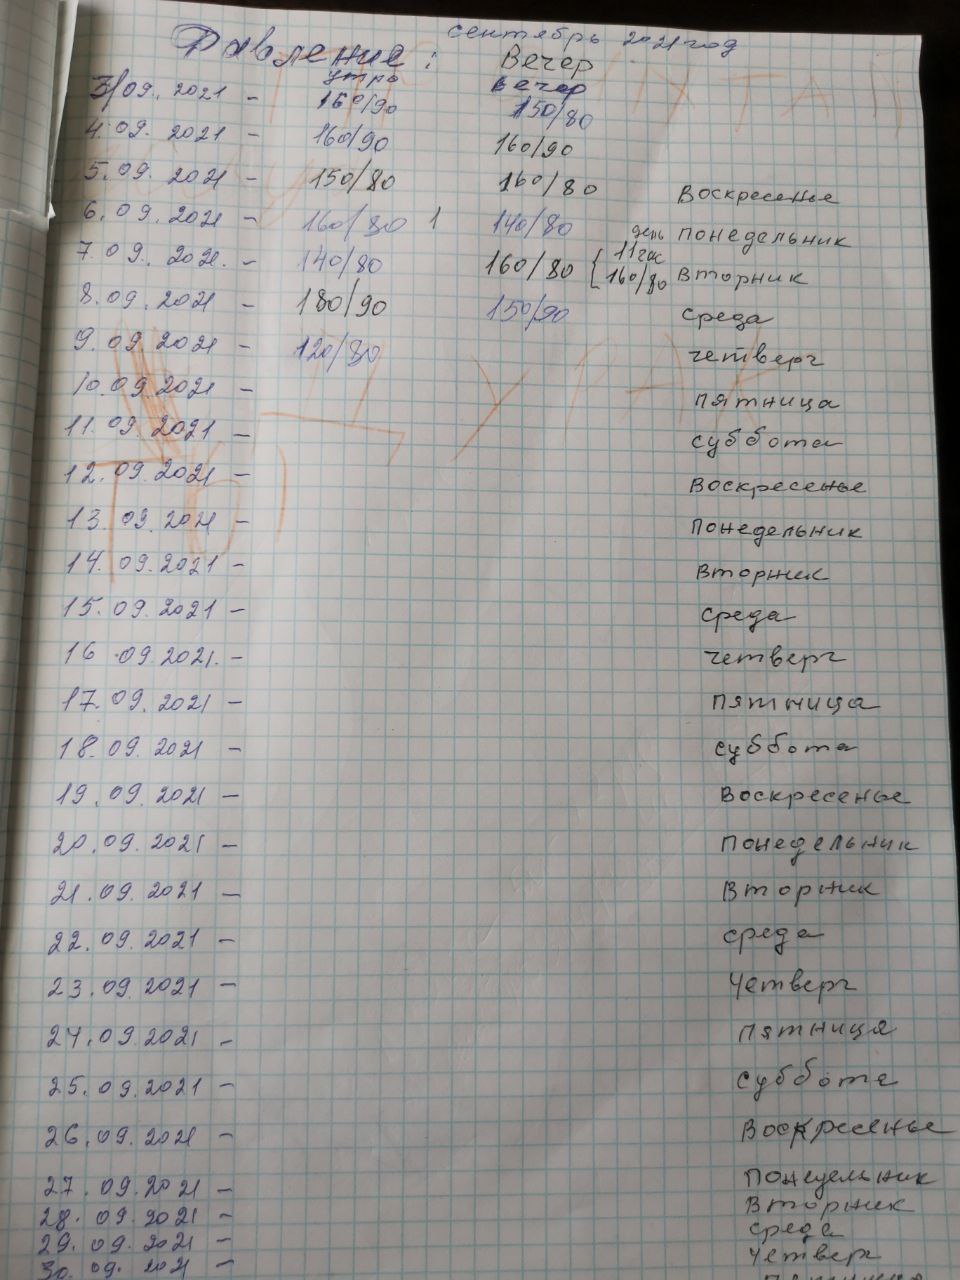 сентябрь 2021 год
Давление: Вечер
утро вечер
3/09.2021 - 160/90 150/80
4.09.2021 - 160/90 160/90
5.09.2021 - 150/80 160/80 Воскресенье
6.09.2021 - 160/80 1 140/80 понедельник
день
11 час
7.09.2021. - 140/80 160/80 { 160/80 Вторник
8.09.2021 - 180/90 150/90 среда
9.09.2021 - 120/80 четверг
10.09.2021 - пятница
11.09.2021 - суббота
12.09.2021 - Воскресенье
13.09.2021 - понедельник
14.09.2021 - Вторник
15.09.2021 - среда
16.09.2021. - четверг
17.09.2021 - пятница
18.09.2021 - суббота
19.09.2021 - Воскресенье
20.09.2021 - понедельник
21.09.2021 - Вторник
22.09.2021 - среда
23.09.2021 - Четверг
24.09.2021 - пятница
25.09.2021 - суббота
26.09.2021 - Воскресенье
27.09.2021 - понедельник
28.09.2021 - Вторник
29.09.2021 - среда
30.09.2021 - Четверг